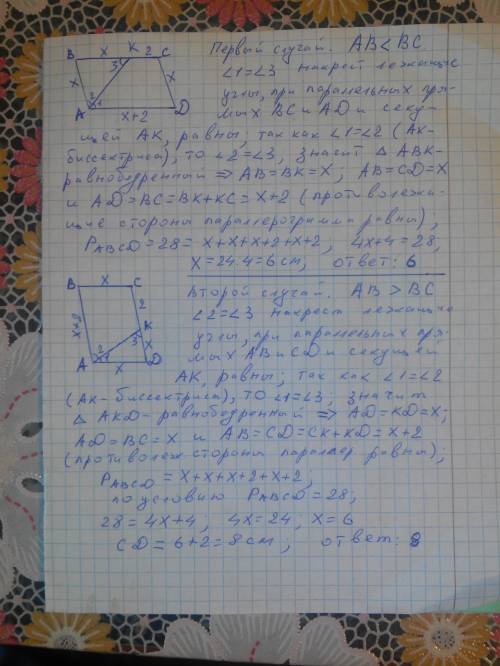 B x K 2 C
x 3 x
2 1
A x+2 D
Первый случай. AB < BC
∠1=∠3 накрест лежащие
углы, при параллельных пря-
мых BC и AD и секу-
щей AK, равны; так как ∠1=∠2 (AK-
биссектриса), то ∠2=∠3, значит △ ABK-
равнобедренный ⇒ AB=BK=X; AB=CD=X
и AD=BC=BK+KC=X+2 (противолежа-
щие стороны параллерограмма равны);
PABCD=28= X+X+X+2+X+2; 4X+4=28;
X=24:4=6см; ответ: 6
B x C
x+2 2
K
2 3 x
1
A x D
Второй случай. AB > BC
∠2=∠3 накрест лежащие
углы, при параллельных пря-
мых AB и CD и секущей
AK, равны; так как ∠1=∠2
(AK-биссектриса), то ∠1=∠3, значит
△ AKD-равнобедренный ⇒ AD=KD=X;
AD=BC=X и AB=CD=CK+KD=X+2
(противолеж стороны паралер. равны);
PABCD=X+X+X+2+X+2;
по условию PABCD=28;
28=4X+4; 4X=24; X=6
CD=6+2=8см; ответ: 8